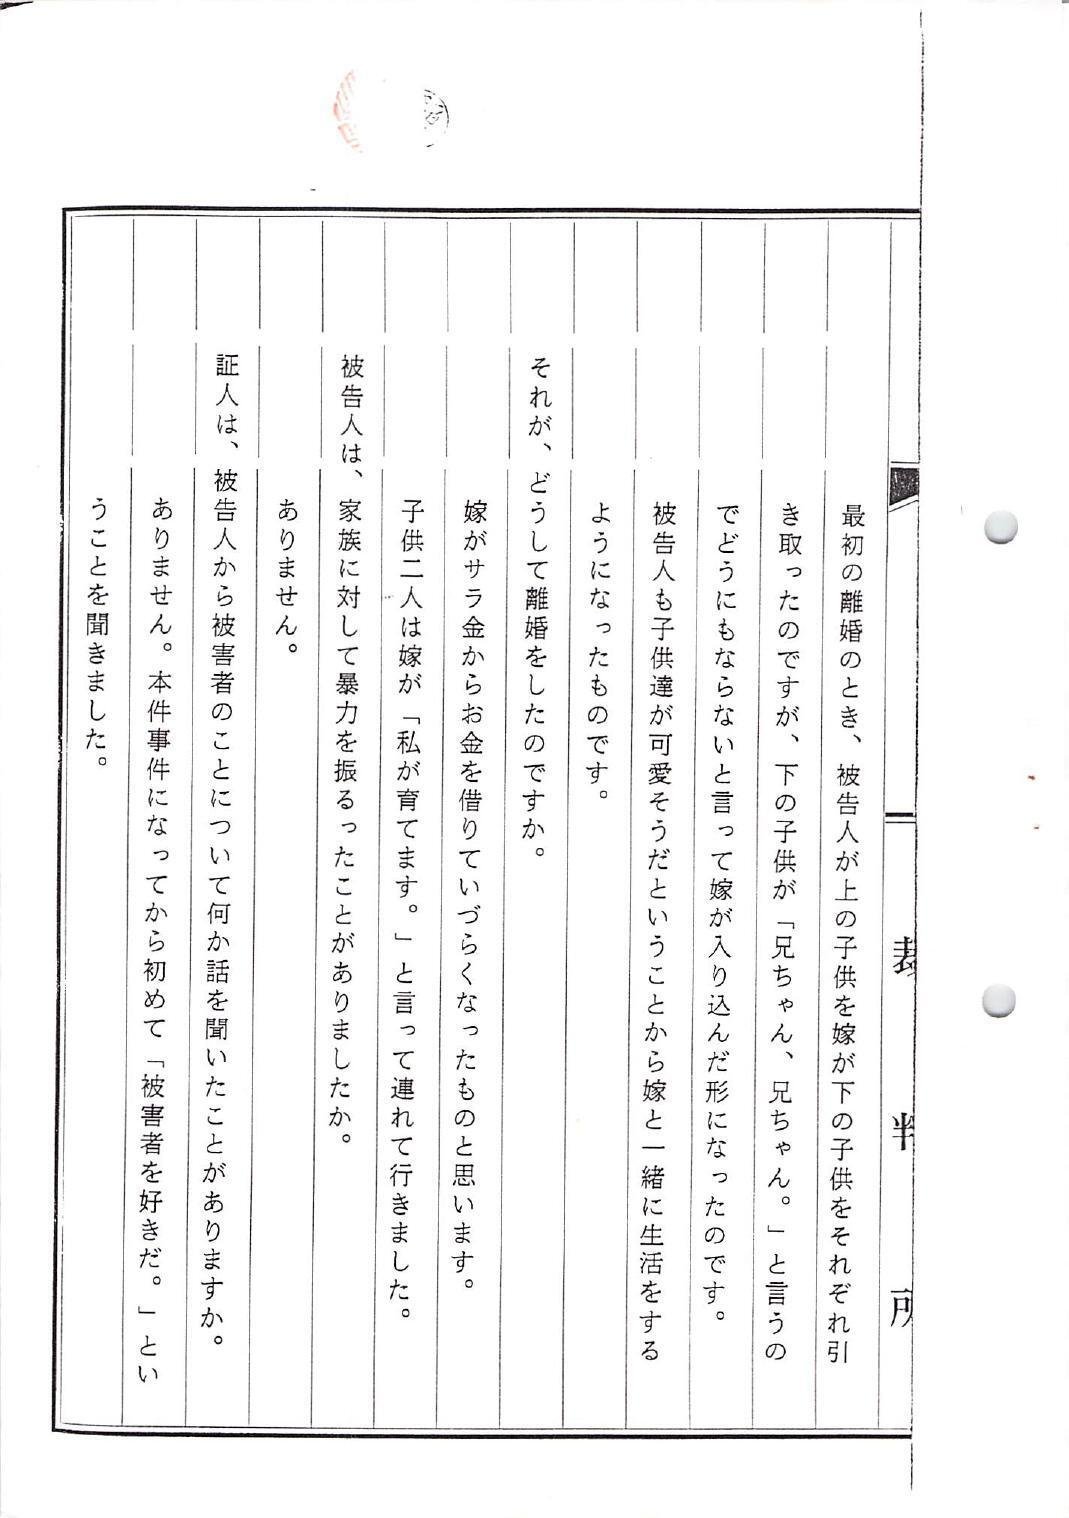 裁判所
最初の離婚のとき、被告人が上の子供を嫁が下の子供をそれぞれ引
き取ったのですが、下の子供が「兄ちゃん、兄ちゃん。」と言うの
でどうにもならないと言って嫁が入り込んだ形になったのです。
被告人も子供達が可愛そうだということから嫁と一緒に生活をする
ようになったものです。
それが、どうして離婚をしたのですか。
嫁がサラ金からお金を借りていづらくなったものと思います。
子供二人は嫁が「私が育てます。」と言って連れて行きました。
被告人は、家族に対して暴力を振るったことがありましたか。
ありません。
証人は、被告人から被害者のことについて何か話を聞いたことがありますか。
ありません。本件事件になってから初めて「被害者を好きだ。」とい
うことを聞きました。